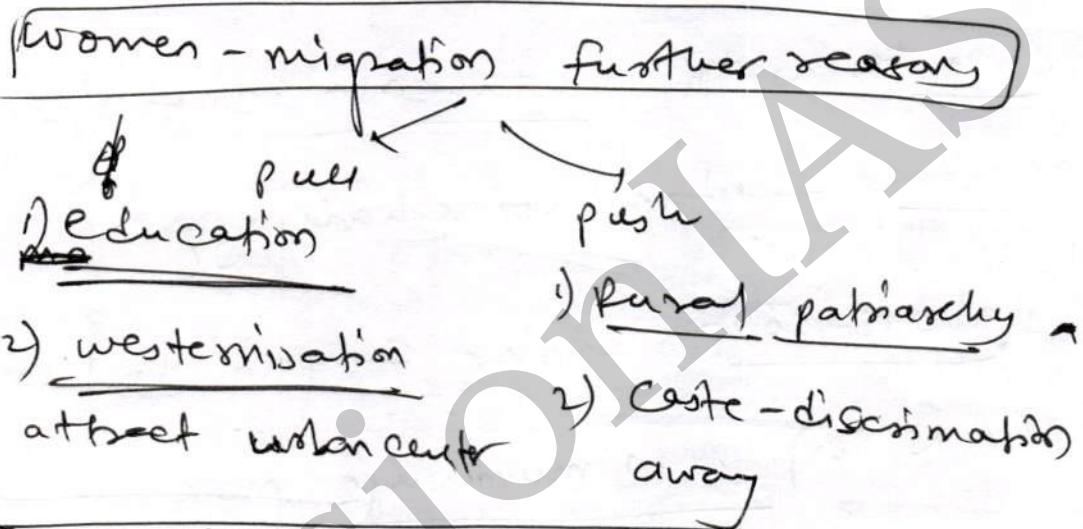 Women - migration further reasons
pull
push
1) education
2) westernisation
attract urban center
1) Rural patriarchy
2) Caste - discrimination
away